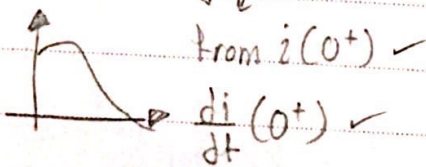 from i(0⁺) ✓
di/dt (0⁺) ✓